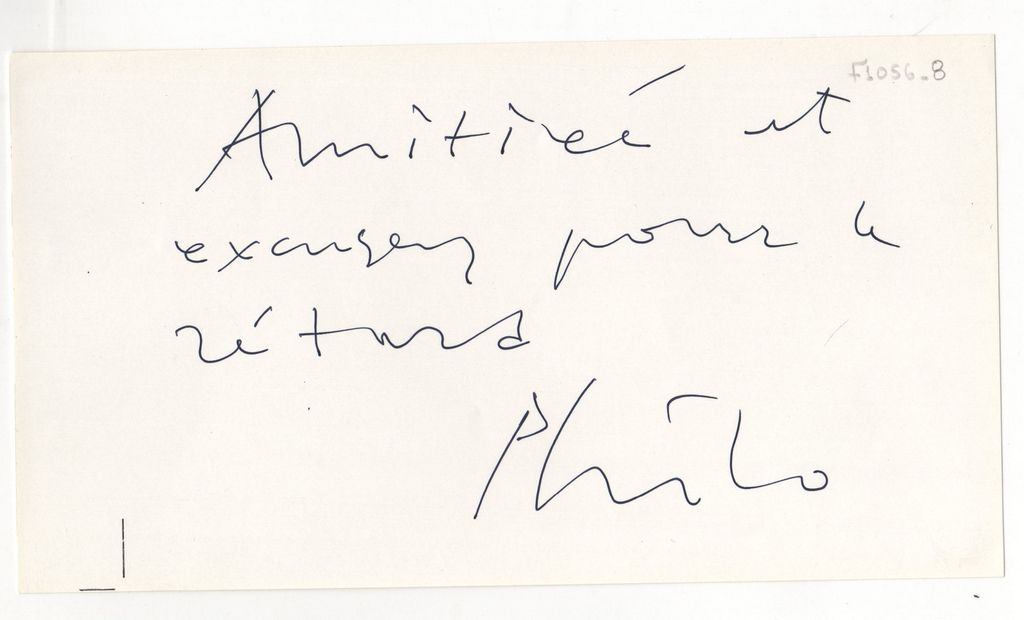 F1056.8
Amitiéé et
excusen pour le
rétard
Philo